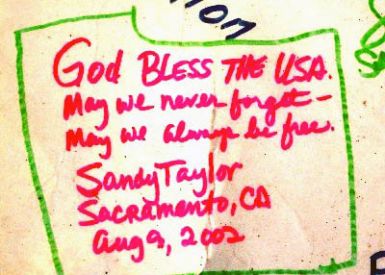 God BLESS THE USA.
May we never forget –
May we always be free.
Sandy Taylor
Sacramento, CA
Aug 9, 2002